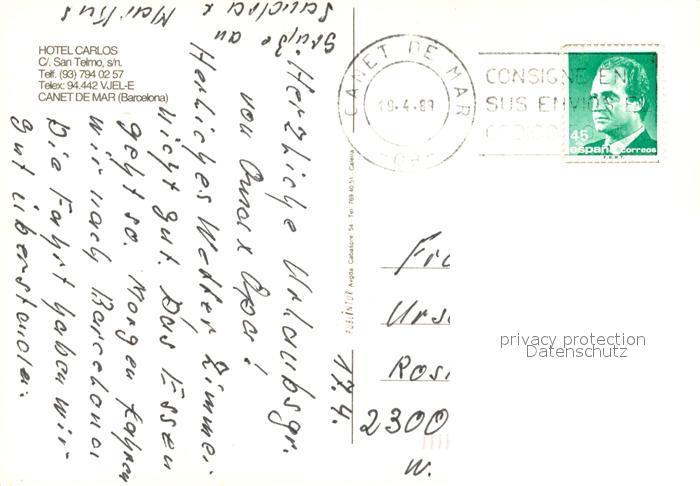 HOTEL CARLOS
C/. San Telmo, s/n.
Telf. (93) 794 02 57
Telex: 94.442 VJEL-E
CANET DE MAR (Barcelona)
17.4.
Herzliche Urlaubsgr.
von Omax Opa!
Herliches Wetter Zimmer
nicht gut. Das Essen
geht so. Morgen fahren
wir nach Barcelona.
Die Fahrt haben wir
gut überstanden.
Grüße an
Sandra x
Markus
CANET DE MAR
19-4-89
CONSIGNE EN
SUS ENVIOS E
CODIGO
45
españa correos
F.N.M.T.
Avgda. Cabalsore 54 Tel. 769 40 51
Urs
Ros
2300
W.
privacy protection
Datenschutz